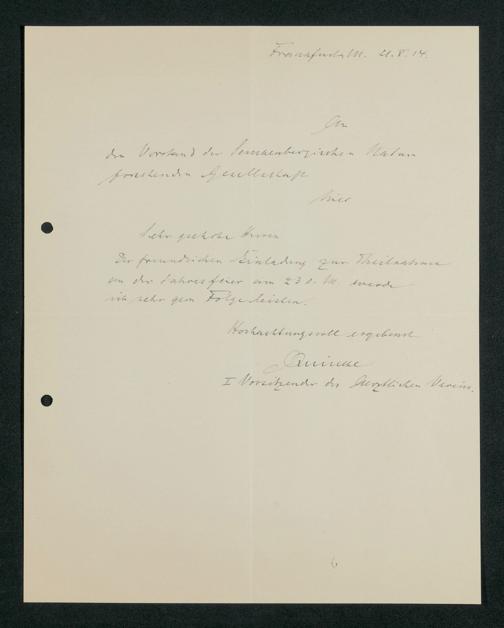 Frankfurt a/M. 21.V.14.
An
den Vorstand der Senckenbergischen Natur
forschenden Gesellschaft
hier
Sehr geehrte Herren
Der freundlichen Einladung zur Theilnahme
an der Jahresfeier am 23 d. M. werde
ich sehr gern Folge leisten.
Hochachtungsvoll ergebenst
Quincke
I Vorsitzender des Aerztlichen Vereins.